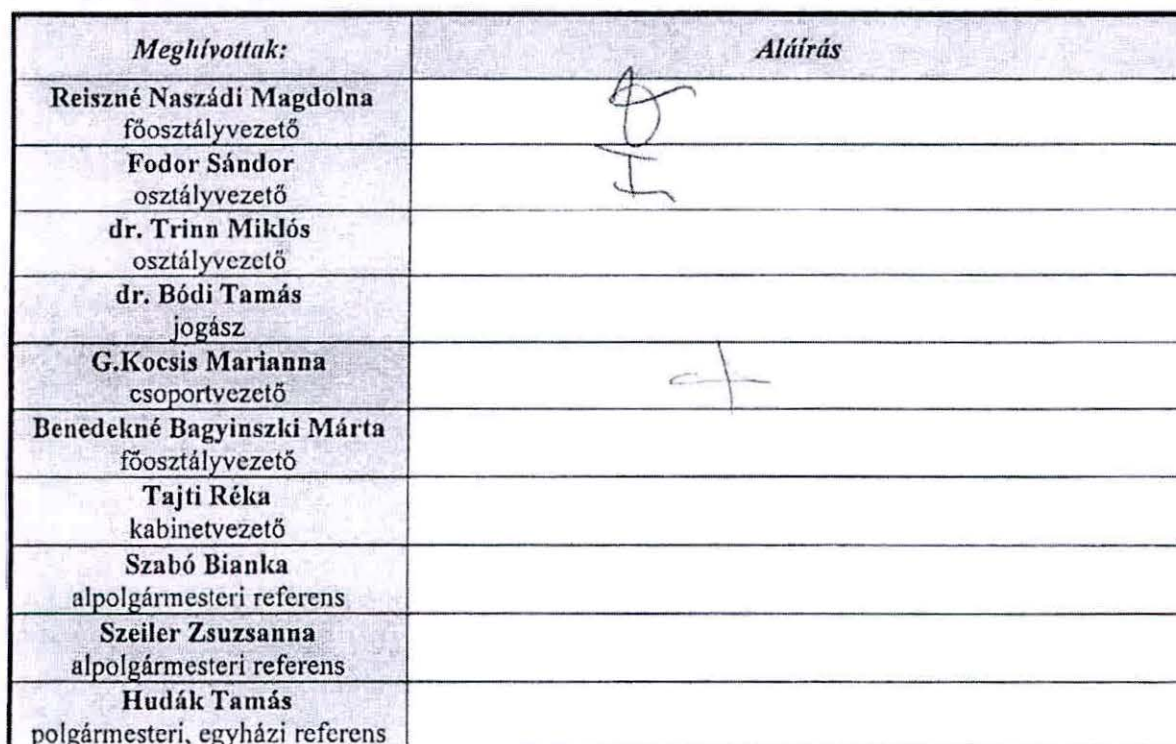 Meghívottak: Aláírás
Reiszné Naszádi Magdolna
főosztályvezető
Fodor Sándor
osztályvezető
dr. Trinn Miklós
osztályvezető
dr. Bódi Tamás
jogász
G.Kocsis Marianna
csoportvezető
Benedekné Bagyinszki Márta
főosztályvezető
Tajti Réka
kabinetvezető
Szabó Bianka
alpolgármesteri referens
Szeiler Zsuzsanna
alpolgármesteri referens
Hudák Tamás
polgármesteri, egyházi referens